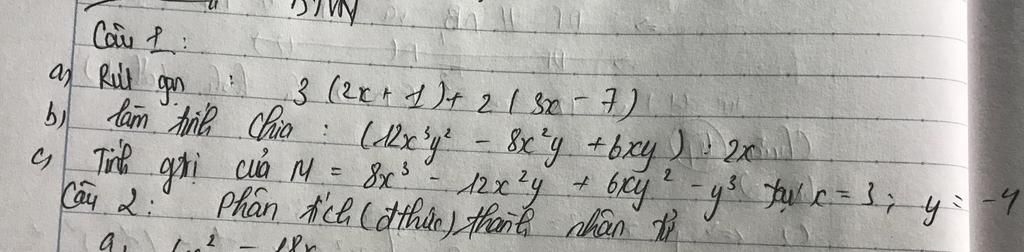 BTVN
Câu 1 :
a) Rút gọn : 3 (2x + 1) + 2 (3x - 7)
b) làm tính chia : (12x³y² - 8x²y + 6xy) : 2x
c) Tính gtri của M = 8x³ - 12x²y + 6xy² - y³ tại x = 3 ; y = -4
Câu 2 : Phân tích (đthức) thành nhân tử
a,